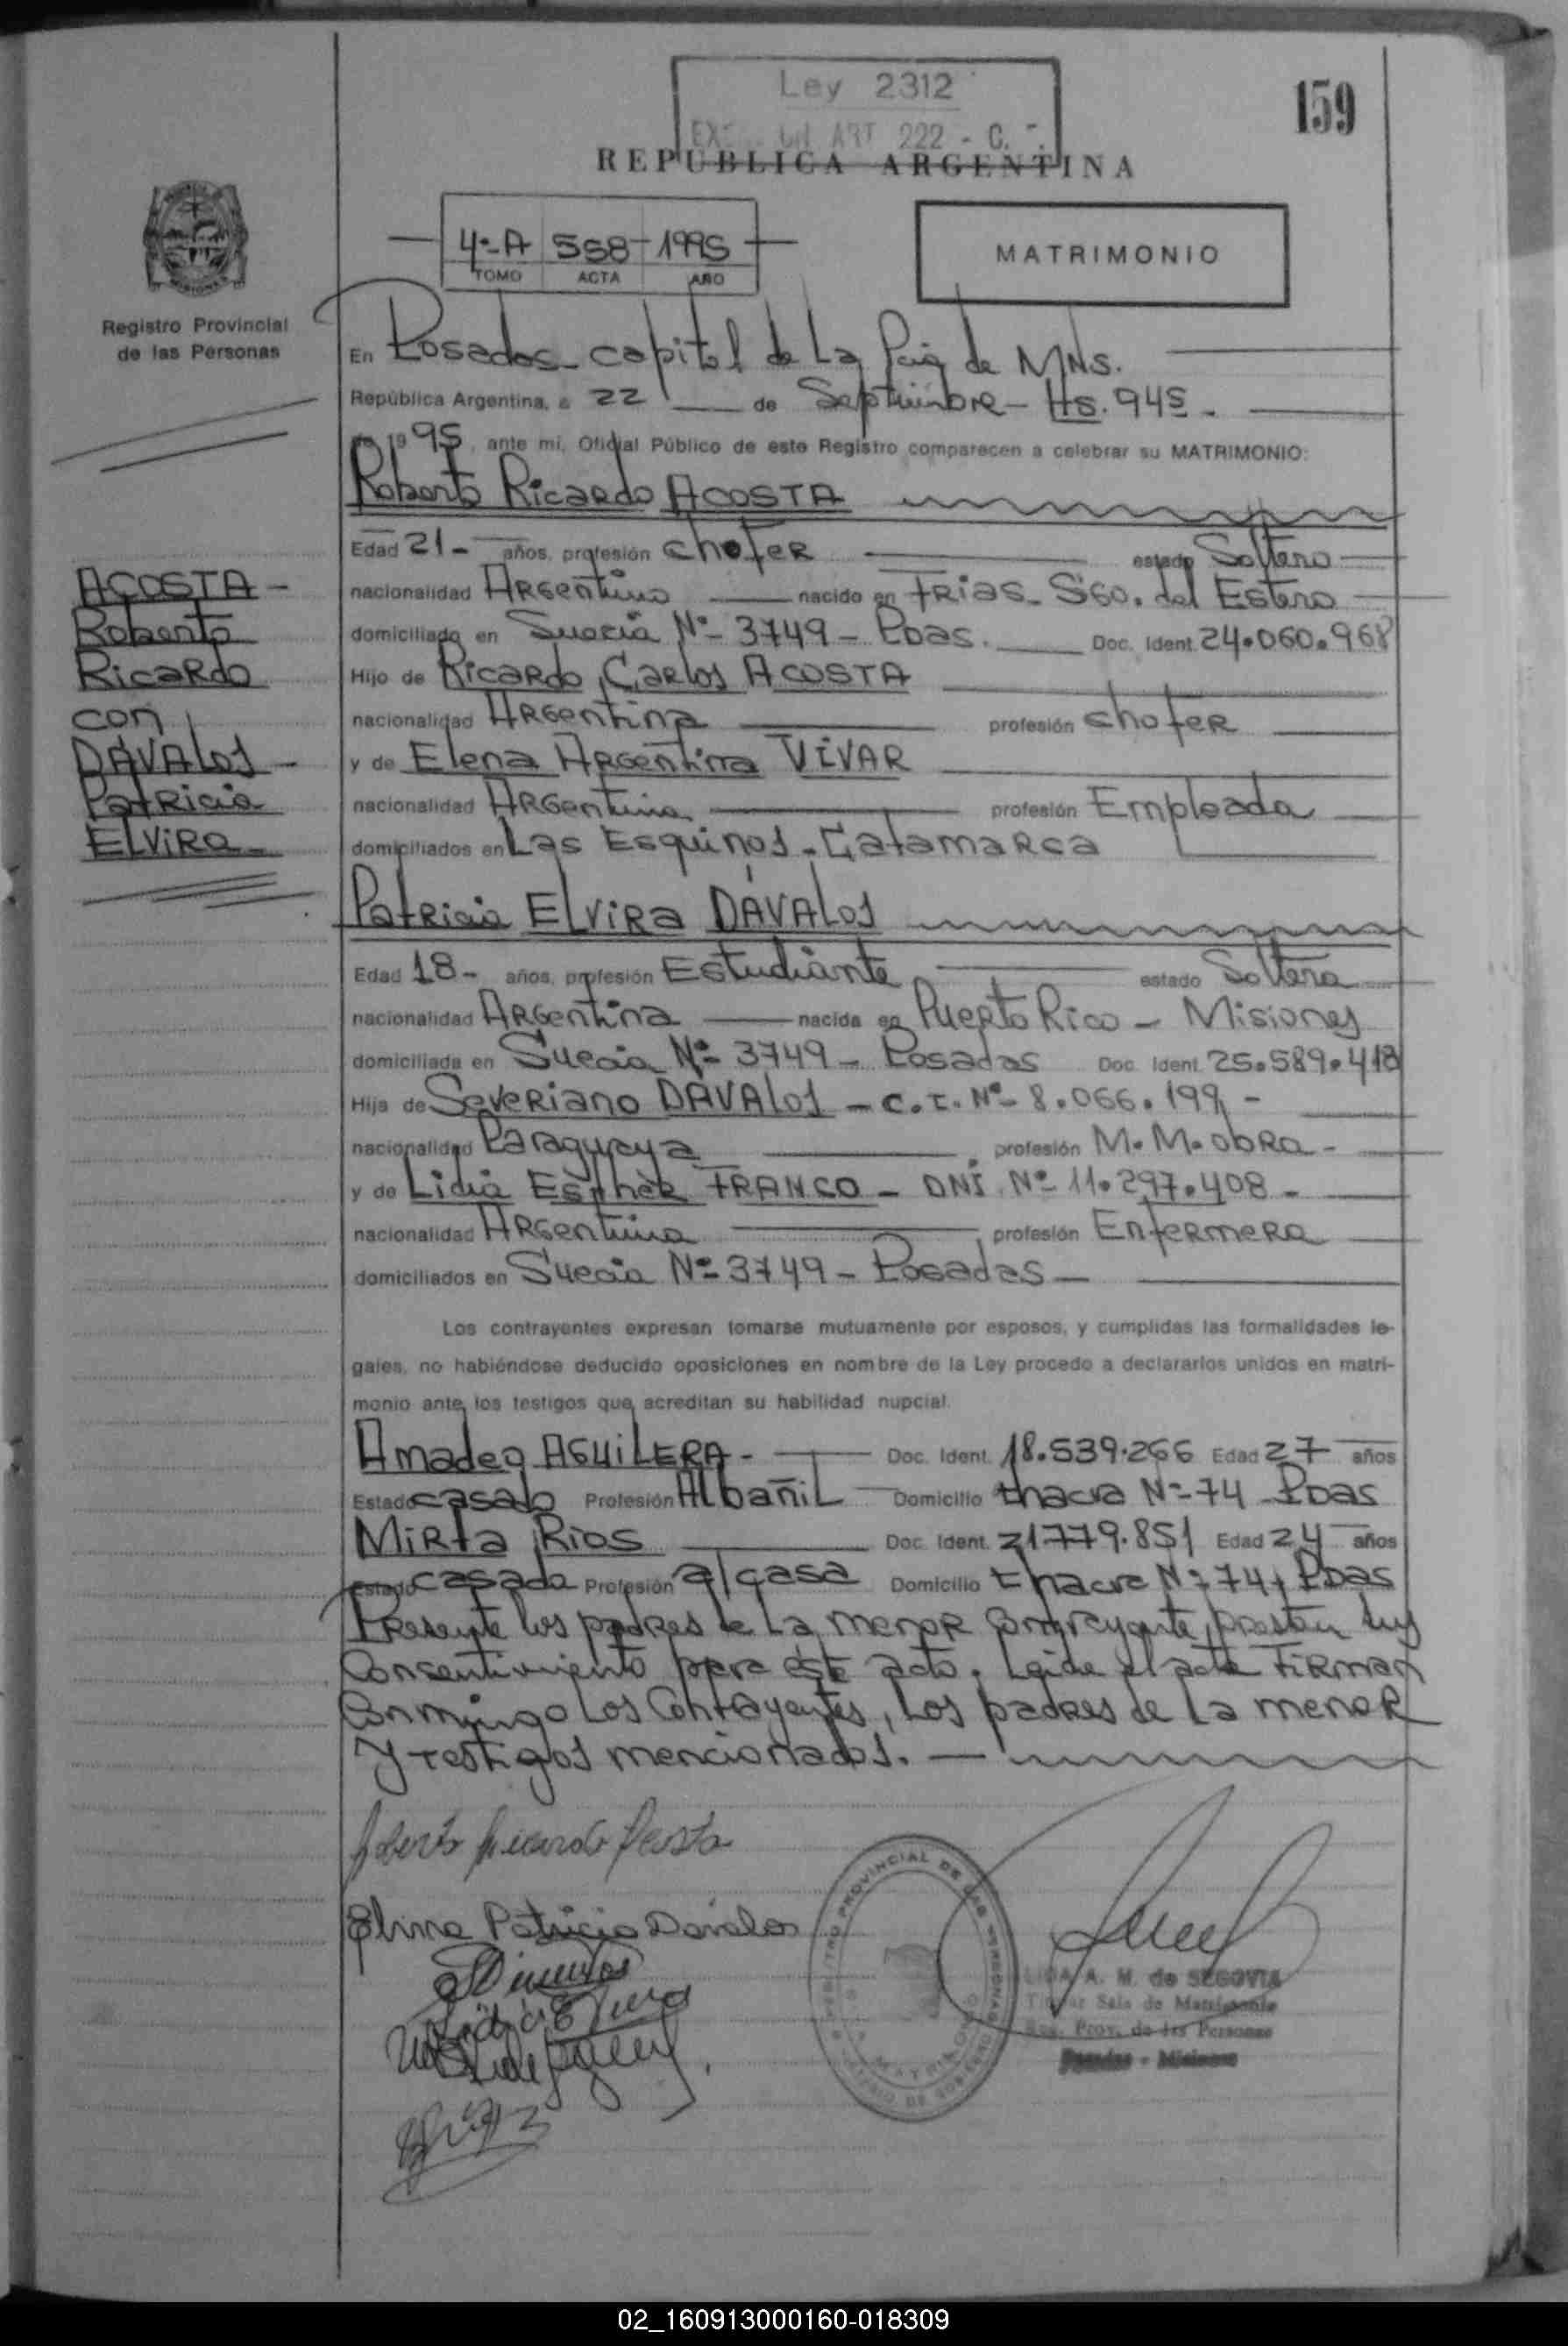 Ley 2312
ART 222 - C.
159
REPUBLICA ARGENTINA
4º-A 558-1995
TOMO ACTA AÑO
MATRIMONIO
Registro Provincial
de las Personas
En Posadas- capital de La Pcia de MNS.
República Argentina, a 22 de Septiembre - Hs. 945 -
de 1995, ante mi, Oficial Público de este Registro comparecen a celebrar su MATRIMONIO:
Roberto Ricardo ACOSTA
Edad 21- años, profesión chofer estado Soltero
nacionalidad Argentino nacido en Frias- Sgo. del Estero
domiciliado en Suecia Nº- 3749 - Pdas. Doc. Ident. 24.060.968
Hijo de Ricardo Carlos ACOSTA
nacionalidad Argentina profesión chofer
y de Elena Argentina VIVAR
nacionalidad Argentina profesión Empleada
domiciliados en Las Esquinas - Catamarca
ACOSTA -
Roberto
Ricardo
con
DÁVALOS -
Patricia
Elvira -
Patricia Elvira DÁVALOS
Edad 18- años, profesión Estudiante estado Soltera
nacionalidad Argentina nacida en Puerto Rico - Misiones
domiciliada en Suecia Nº- 3749 - Posadas Doc. Ident. 25.589.418
Hija de Severiano DAVALOS - C.I. Nº- 8.066.199 -
nacionalidad Paraguaya profesión M. M. obra -
y de Lidia Esther FRANCO - DNI Nº 11.297.408 -
nacionalidad Argentina profesión Enfermera
domiciliados en Suecia Nº- 3749 - Posadas -
Los contrayentes expresan tomarse mutuamente por esposos, y cumplidas las formalidades le-
gales, no habiéndose deducido oposiciones en nombre de la Ley procedo a declararlos unidos en matri-
monio ante los testigos que acreditan su habilidad nupcial.
Amadeo AGUILERA - Doc. Ident. 18.539.266 Edad 27 años
Estado casado Profesión Albañil Domicilio chacra Nº- 74 Pdas
Mirta Rios Doc. Ident. 21779.851 Edad 24 años
Estado casada Profesión q/casa Domicilio chacra Nº- 74, Pdas
Presente los padres de La menor Contrayente, prestan sus
Consentimiento para éste acto. Leida el acta Firman
Conmingo Los Contrayentes, Los padres de La menor
y testigos mencionados. -
Roberto Ricardo Acosta
Elvira Patricia Davalos
REGISTRO PROVINCIAL DE LAS PERSONAS
LIDA A. M. de SEGOVIA
Titular Sala de Matrimonio
Reg. Prov. de las Personas
Posadas - Misiones
02_160913000160-018309